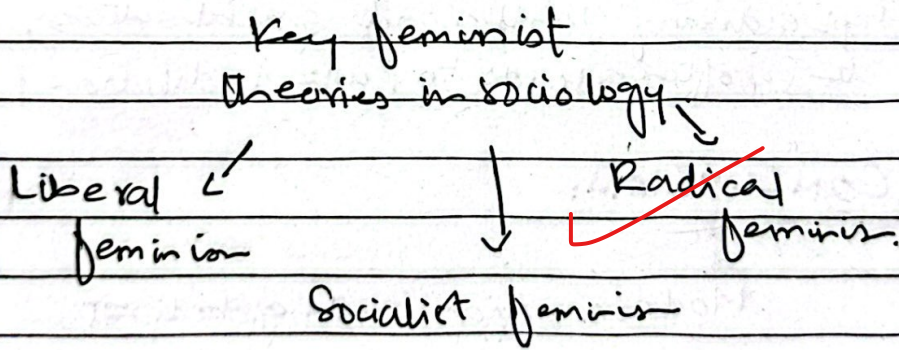 Key feminist
theories in sociology
Liberal
feminism
Radical
feminism.
Socialist feminism